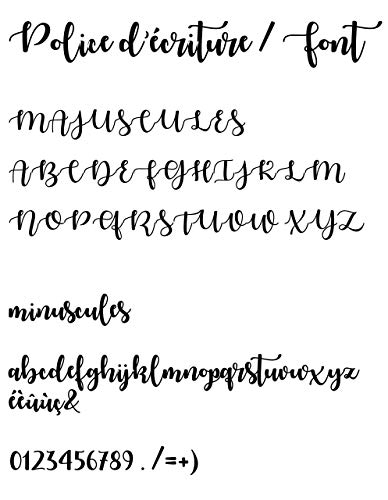 Police d'écriture / font
MAJUSCULES
ABCDEFGHIJKLM
NOPQRSTUVWXYZ
minuscules
abcdefghijklmnopqrstuvwxyz
éèûùç&
0123456789 . /=+)